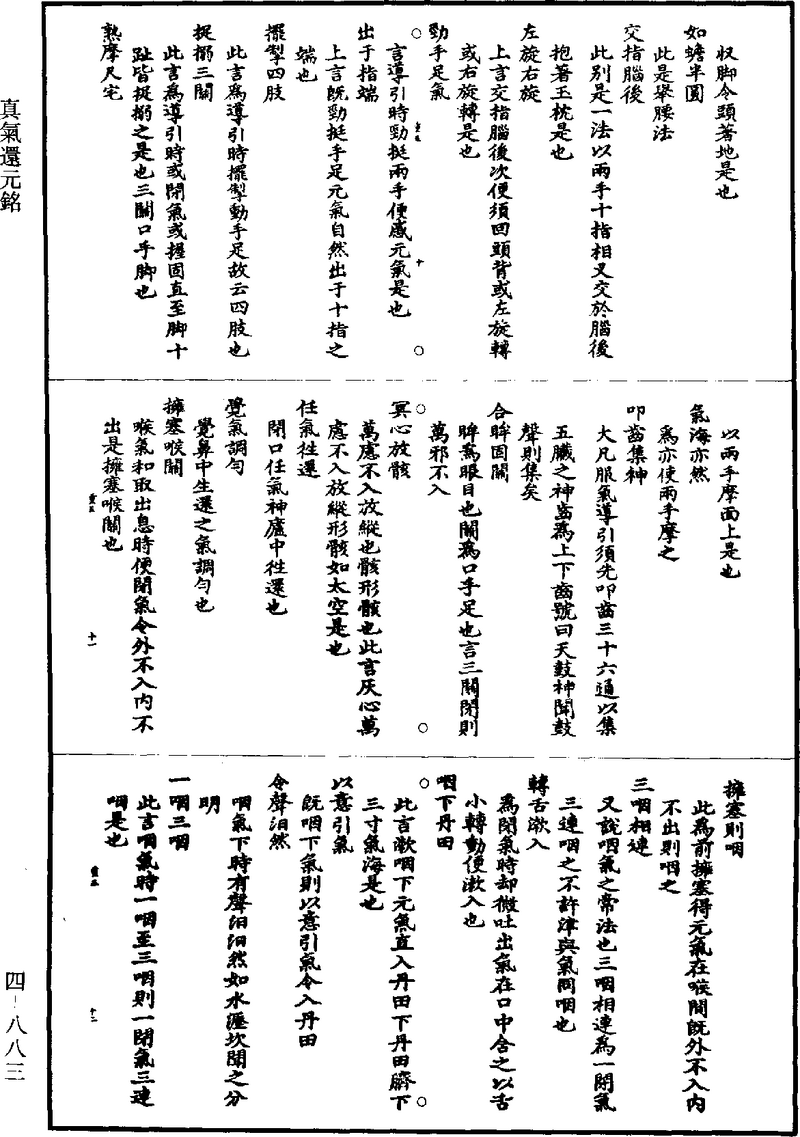 收脚令頭著地是也
如蟾半圓
此是舉腰法
交指腦後
此别是一法以兩手十指相叉交於腦後
抱著玉枕是也
左旋右旋
上言交指腦後次便須回頭背或左旋轉
或右旋轉是也
勁手足氣
言導引時勁挺兩手便感元氣是也
出于指端
上言旣勁挺手足元氣自然出于十指之
端也
擺掣四肢
此言爲導引時擺掣動手足故云四肢也
捉搦三關
此言爲導引時或閉氣或握固直至脚十
趾皆捉搦之是也三關口手脚也
熟摩尺宅
以兩手摩面上是也
氣海亦然
爲亦使兩手摩之
叩齒集神
大凡服氣導引須先叩齒三十六通以集
五臟之神齒爲上下齒號曰天鼓神聞鼓
聲則集矣
合眸固關
眸爲眼目也關爲口手足也言三關閉則
萬邪不入
冥心放骸
萬慮不入放縱也骸形骸也此言灰心萬
慮不入放縱形骸如太空是也
任氣徃還
閉口任氣神廬中徃還也
覺氣調勻
覺鼻中生還之氣調勻也
擁塞喉關
喉氣和取出息時便閉氣令外不入內不
出是擁塞喉關也
十一
擁塞則咽
此爲前擁塞得元氣在喉間旣外不入內
不出則咽之
三咽相連
又說咽氣之常法也三咽相連爲一閉氣
三連咽之不許津與氣同咽也
轉舌漱入
爲閉氣時却微吐出氣在口中含之以舌
小轉動便漱入也
咽下丹田
此言漱咽下元氣直入丹田下丹田臍下
三寸氣海是也
以意引氣
旣咽下氣則以意引氣令入丹田
令聲汩然
咽氣下時有聲汩汩然如水瀝坎聞之分
明
一咽三咽
此言咽氣時一咽至三咽則一閉氣三連
咽是也
十二
真氣還元銘
四-八八三